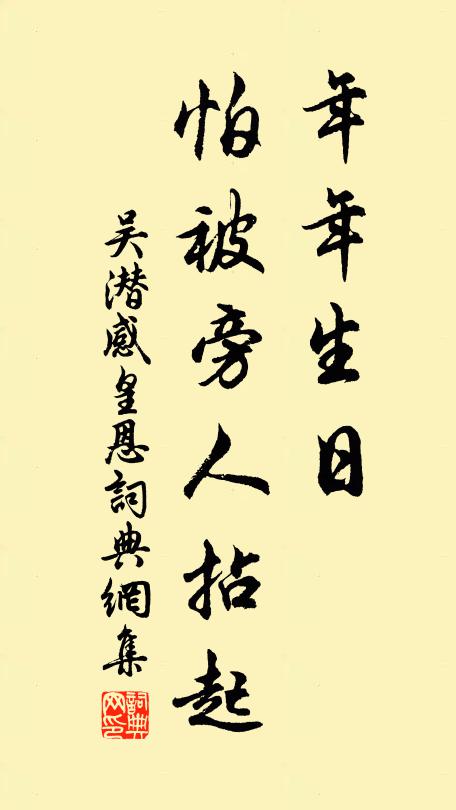 年年生日
怕被旁人拈起
吴潜感皇恩詞典網集
詞典网印